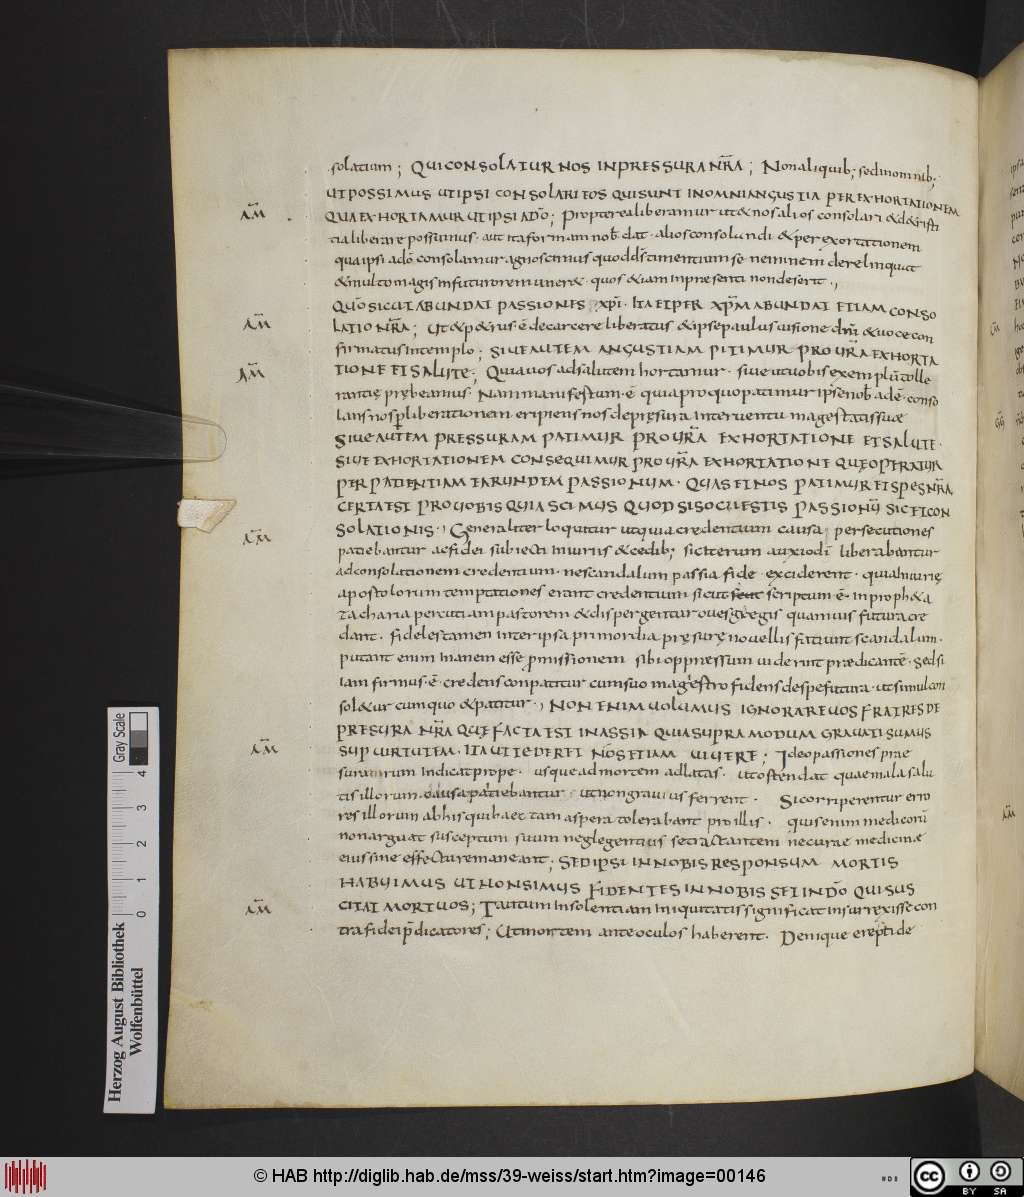 solatium; QUI CONSOLATUR NOS IN PRESSURA NR̅A; Non aliquib; sed in omnib;
UT POSSIMUS UT IPSI CONSOLARI EOS QUI SUNT IN OMNI ANGUSTIA PER EXHORTATIONEM
AM̅ QUA EXHORTAMUR UT IPSI A DO̅; Propterea liberamur ut & nos alios consolari & de tristi
tia liberare possimus. aut ita formam nob̅ dat. alios consolandi & per exortationem
qua ipsi a do̅ consolamur agnoscimus quod d̅s timentium se neminem derelinquit
& multo magis in futuro remuner&. quos & iam in presenti non deserit.,
QUO̅ SICUT ABUNDAT PASSIONES XPI̅. ITA ET PER XPM̅ ABUNDAT ETIAM CONSO
AM̅ LATIO NR̅A; Ut & p&rus e̅ de carcere liberatus & ipse paulus visione dn̅i & voce con
firmatus in templo; SIVE AUTEM ANGUSTIAM PATIMUR PRO VR̅A EXHORTA
AM̅ TIONE ET SALUTE; Quia vos ad salutem hortamur. sive ut vobis exemplu̅ tolle
rantię prębeamus. Nam manifestum e̅ quia pro quo patimur ipse nob̅ ade̅. conso
lans nos p liberationem eripiens nos de pręsura interventu magestatis suae
SIVE AUTEM PRESSURAM PATIMUR PRO VR̅A EXHORTATIONE ET SALUTE.
SIVE EXHORTATIONEM CONSEQUIMUR PRO VR̅A EXHORTATIONE QUĘ OPERATUR
PER PATIENTIAM EARUNDEM PASSIONUM. QUAS ET NOS PATIMUR ET SPES NR̅A
CERTA EST PRO VOBIS QUIA SCIMUS QUOD SI SOCII ESTIS PASSIONU̅ SIC ET CON
AM̅ SOLATIONIS., Generaliter loquitur ut quia credentium causa persecutiones
patiebantur ac fidei subiecti iniuriis & cedib; sic iterum auxi o di̅ liberabantur
ad consolationem credentium. ne scandalum passi a fide exciderent. quia iniurię
apostolorum temptationes erant credentium sicut scriptum e̅ in proph&a
zacharia percutiam pastorem & dispergentur oves gregis quamvis futura cre
dant. fideles tamen inter ipsa primordia pręsurę novellis fatiunt scandalum.
putant enim inanem esse p̅missionem sibi oppressum viderint prædicante̅. sed si
iam firmus e̅ credens conpatitur cum suo magestro fidens de spe futura. ut simul con
sol&ur cum quo & patitur., NON ENIM VOLUMUS IGNORARE VOS FRATRES DE
PRESURA NR̅A QUĘ FACTA EST IN ASSIA QUIA SUPRA MODUM GRAVATI SUMUS
AM̅ SUP VIRTUTEM. ITA UT TEDERET NOS ETIAM VIVERE; Ideo passiones prae
surarum indicat prope. usque ad mortem adlatas. ut ostendat quae mala salu
tis illorum causa patiebantur. ut non gravius ferrent. Si corriperentur erro
res illorum ab his qui haec tam aspera tolerabant pro illis. quis enim medicoru̅
non arguat susceptum suum neglegentius se tractantem ne curae medicinæ
eius sine effectu remaneant; SED IPSI IN NOBIS RESPONSUM MORTIS
HABUIMUS UT NON SIMUS FIDENTES IN NOBIS SET IN DO̅ QUI SUS
AM̅ CITAT MORTUOS; Tantum insolentiam iniquitatis significat insurrexisse con
tra fidei p̅dicatores; Ut mortem ante oculos haberent. Denique erepti de
Herzog August Bibliothek
Wolfenbüttel
0 1 2 3 4
Gray Scale
© HAB http://diglib.hab.de/mss/39-weiss/start.htm?image=00146
cc BY SA